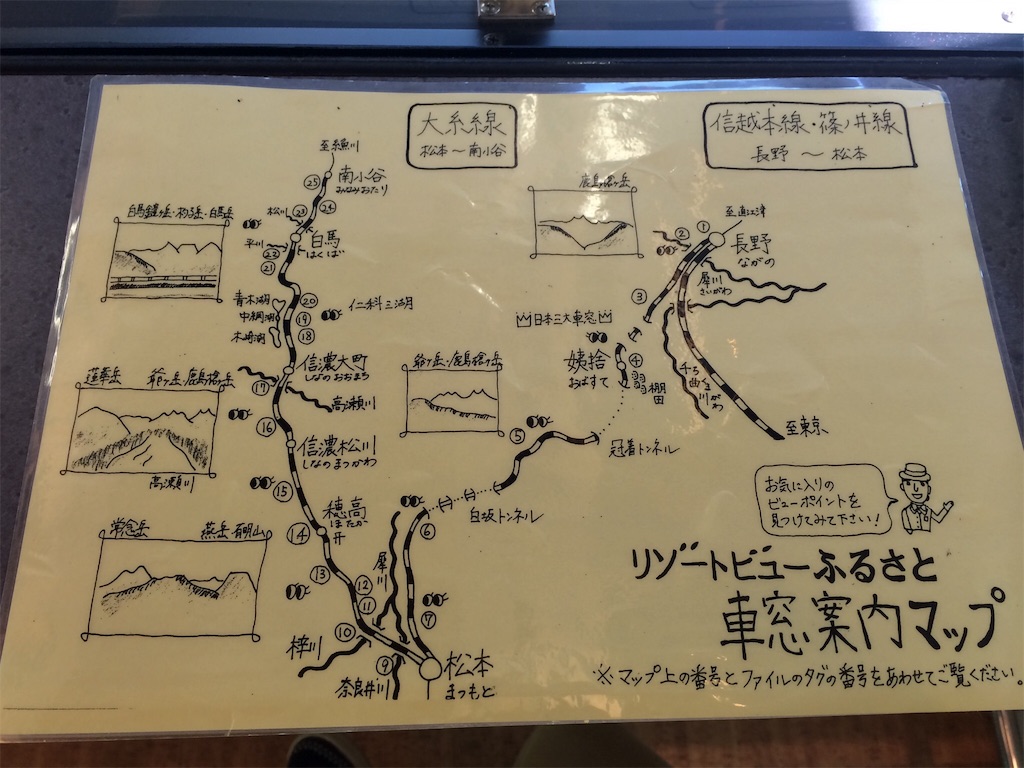 大糸線
松本～南小谷
信越本線・篠ノ井線
長野～松本
至糸魚川
㉕
南小谷
みなみおたり
㉔
㉓
松川
白馬鑓ヶ岳・杓子岳・白馬岳
白馬
はくば
平川
㉒
㉑
青木湖
中綱湖
木崎湖
⑳
⑲
⑱
仁科三湖
信濃大町
しなのおおまち
⑰
高瀬川
蓮華岳
爺ヶ岳・鹿島槍ヶ岳
高瀬川
⑯
信濃松川
しなのまつかわ
⑮
穂高
ほたか
⑭
常念岳
燕岳・有明山
⑬
⑫
⑪
⑩
梓川
⑨
奈良井川
犀川
松本
まつもと
⑦
⑥
白坂トンネル
⑤
冠着トンネル
爺ヶ岳・鹿島槍ヶ岳
鹿島槍ヶ岳
至直江津
①
②
長野
ながの
③
犀川
さいがわ
日本三大車窓
姨捨
おばすて
④
棚田
千曲川
ちくまがわ
至東京
お気に入りの
ビューポイントを
見つけてみて下さい！
リゾートビューふるさと
車窓案内マップ
※マップ上の番号とファイルのタグの番号をあわせてご覧ください。